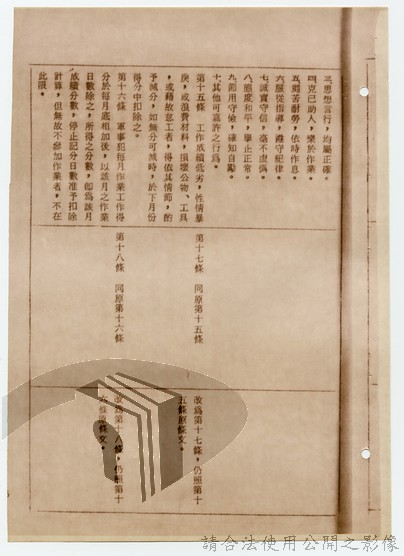 三、思想言行，均屬正確。
四、克己助人，樂於作業。
五、刻苦耐勞，依時作息。
六、服從指導，遵守紀律。
七、誠實守信，毫不虛偽。
八、態度和平，舉止正常。
九、節用守儉，確知自勵。
十、其他可嘉許之行為。
第十五條　工作成績低劣，性情暴
戾，或浪費材料，損壞公物、工具
，或藉故怠工者，得依其情節，酌
予減分，如無分可減時，於下月份
得分中扣除之。
第十六條　軍事犯每月作業工作得
分於每月底相加後，以該月之作業
日數除之，所得之分數，即為該月
成績分數，停止記分日數准予扣除
計算，但無故不參加作業者，不在
此限。
第十七條　同原第十五條
第十八條　同原第十六條
改為第十七條，仍照第十
五條原條文。
改為第十八條，仍照第十
六條原條文。
請合法使用公開之影像